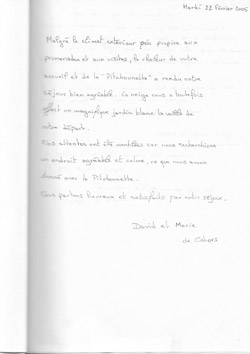 Mardi 22 Février 2005
Malgré le climat extérieur peu propice aux
promenades et aux visites, la chaleur de votre
accueil et de la "Pitchounette" a rendu notre
séjour bien agréable. La neige nous a toutefois
offert un magnifique jardin blanc la veille de
notre départ.
Nos attentes ont été comblées car nous recherchions
un endroit agréable et calme, ce que nous avons
trouvé avec la Pitchounette.
Nous partons heureux et satisfaits par notre séjour.
David et Marie
de Cahors